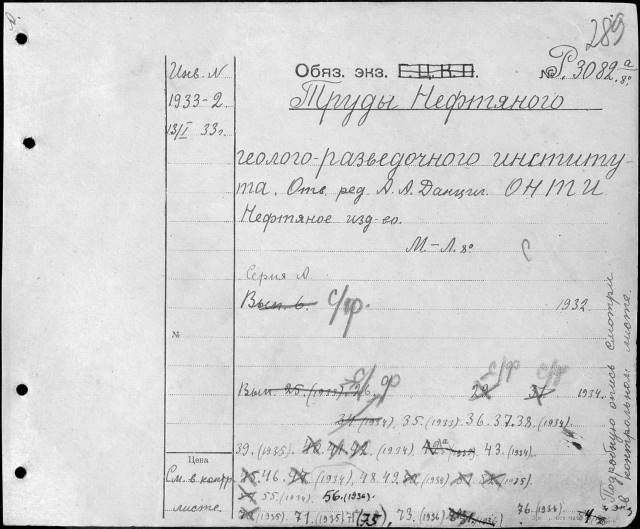 289
Инв. N
Обяз. экз. Г.Ц.К.П.
№ Р. 3082 а/8°
1933-2
Труды Нефтяного
13/I 33 г.
геолого-разведочного институ-
та. Отв. ред. А. А. Данцил. ОНТИ
Нефтяное изд-во.
М.-Л. 8°
С
Серия А.
Вып. 6. с/ф.
1932.
№
Вып. 25. (1933). 26. с/ф
29 с/ф 31 с/ф 1934.
34 (1934). 35. (1933). 36. 37. 38. (1934).
39. (1935). 40. 41. 42. (1934). 43. (1934).
Цена
См. в контр.
листе.
45. 46. 47 (1934). 48. 49. 50 (1934). 51. 52 (1935).
55. (1934). 56. (1936).
70 (1935). 71. (1935). (75), 73. (1936) 76. (1934).
Подробную опись смотри
в контрольном листе.